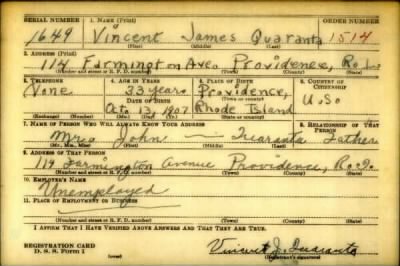 SERIAL NUMBER 1. NAME (Print) ORDER NUMBER
1649 Vincent James Quaranta 1514
(First) (Middle) (Last)
2. ADDRESS (Print)
114 Farmington Ave. Providence, R. I.
(Number and street or R. F. D. number) (Town) (County) (State)
3. TELEPHONE 4. AGE IN YEARS 5. PLACE OF BIRTH 6. COUNTRY OF CITIZENSHIP
None 33 years Providence,
DATE OF BIRTH (Town or county) U.S.
Oct. 13, 1907 Rhode Island
7. NAME OF PERSON WHO WILL ALWAYS KNOW YOUR ADDRESS 8. RELATIONSHIP OF THAT PERSON
Mr. John — Quaranta Father
(Mr., Mrs., Miss) (First) (Middle) (Last)
9. ADDRESS OF THAT PERSON
114 Farmington Avenue Providence, R. I.
(Number and street or R. F. D. number) (Town) (County) (State)
10. EMPLOYER'S NAME
Unemployed
11. PLACE OF EMPLOYMENT OR BUSINESS
(Number and street or R. F. D. number) (Town) (County) (State)
I AFFIRM THAT I HAVE VERIFIED ABOVE ANSWERS AND THAT THEY ARE TRUE.
REGISTRATION CARD
D. S. S. Form 1 Vincent J. Quaranta
(Registrant's signature)